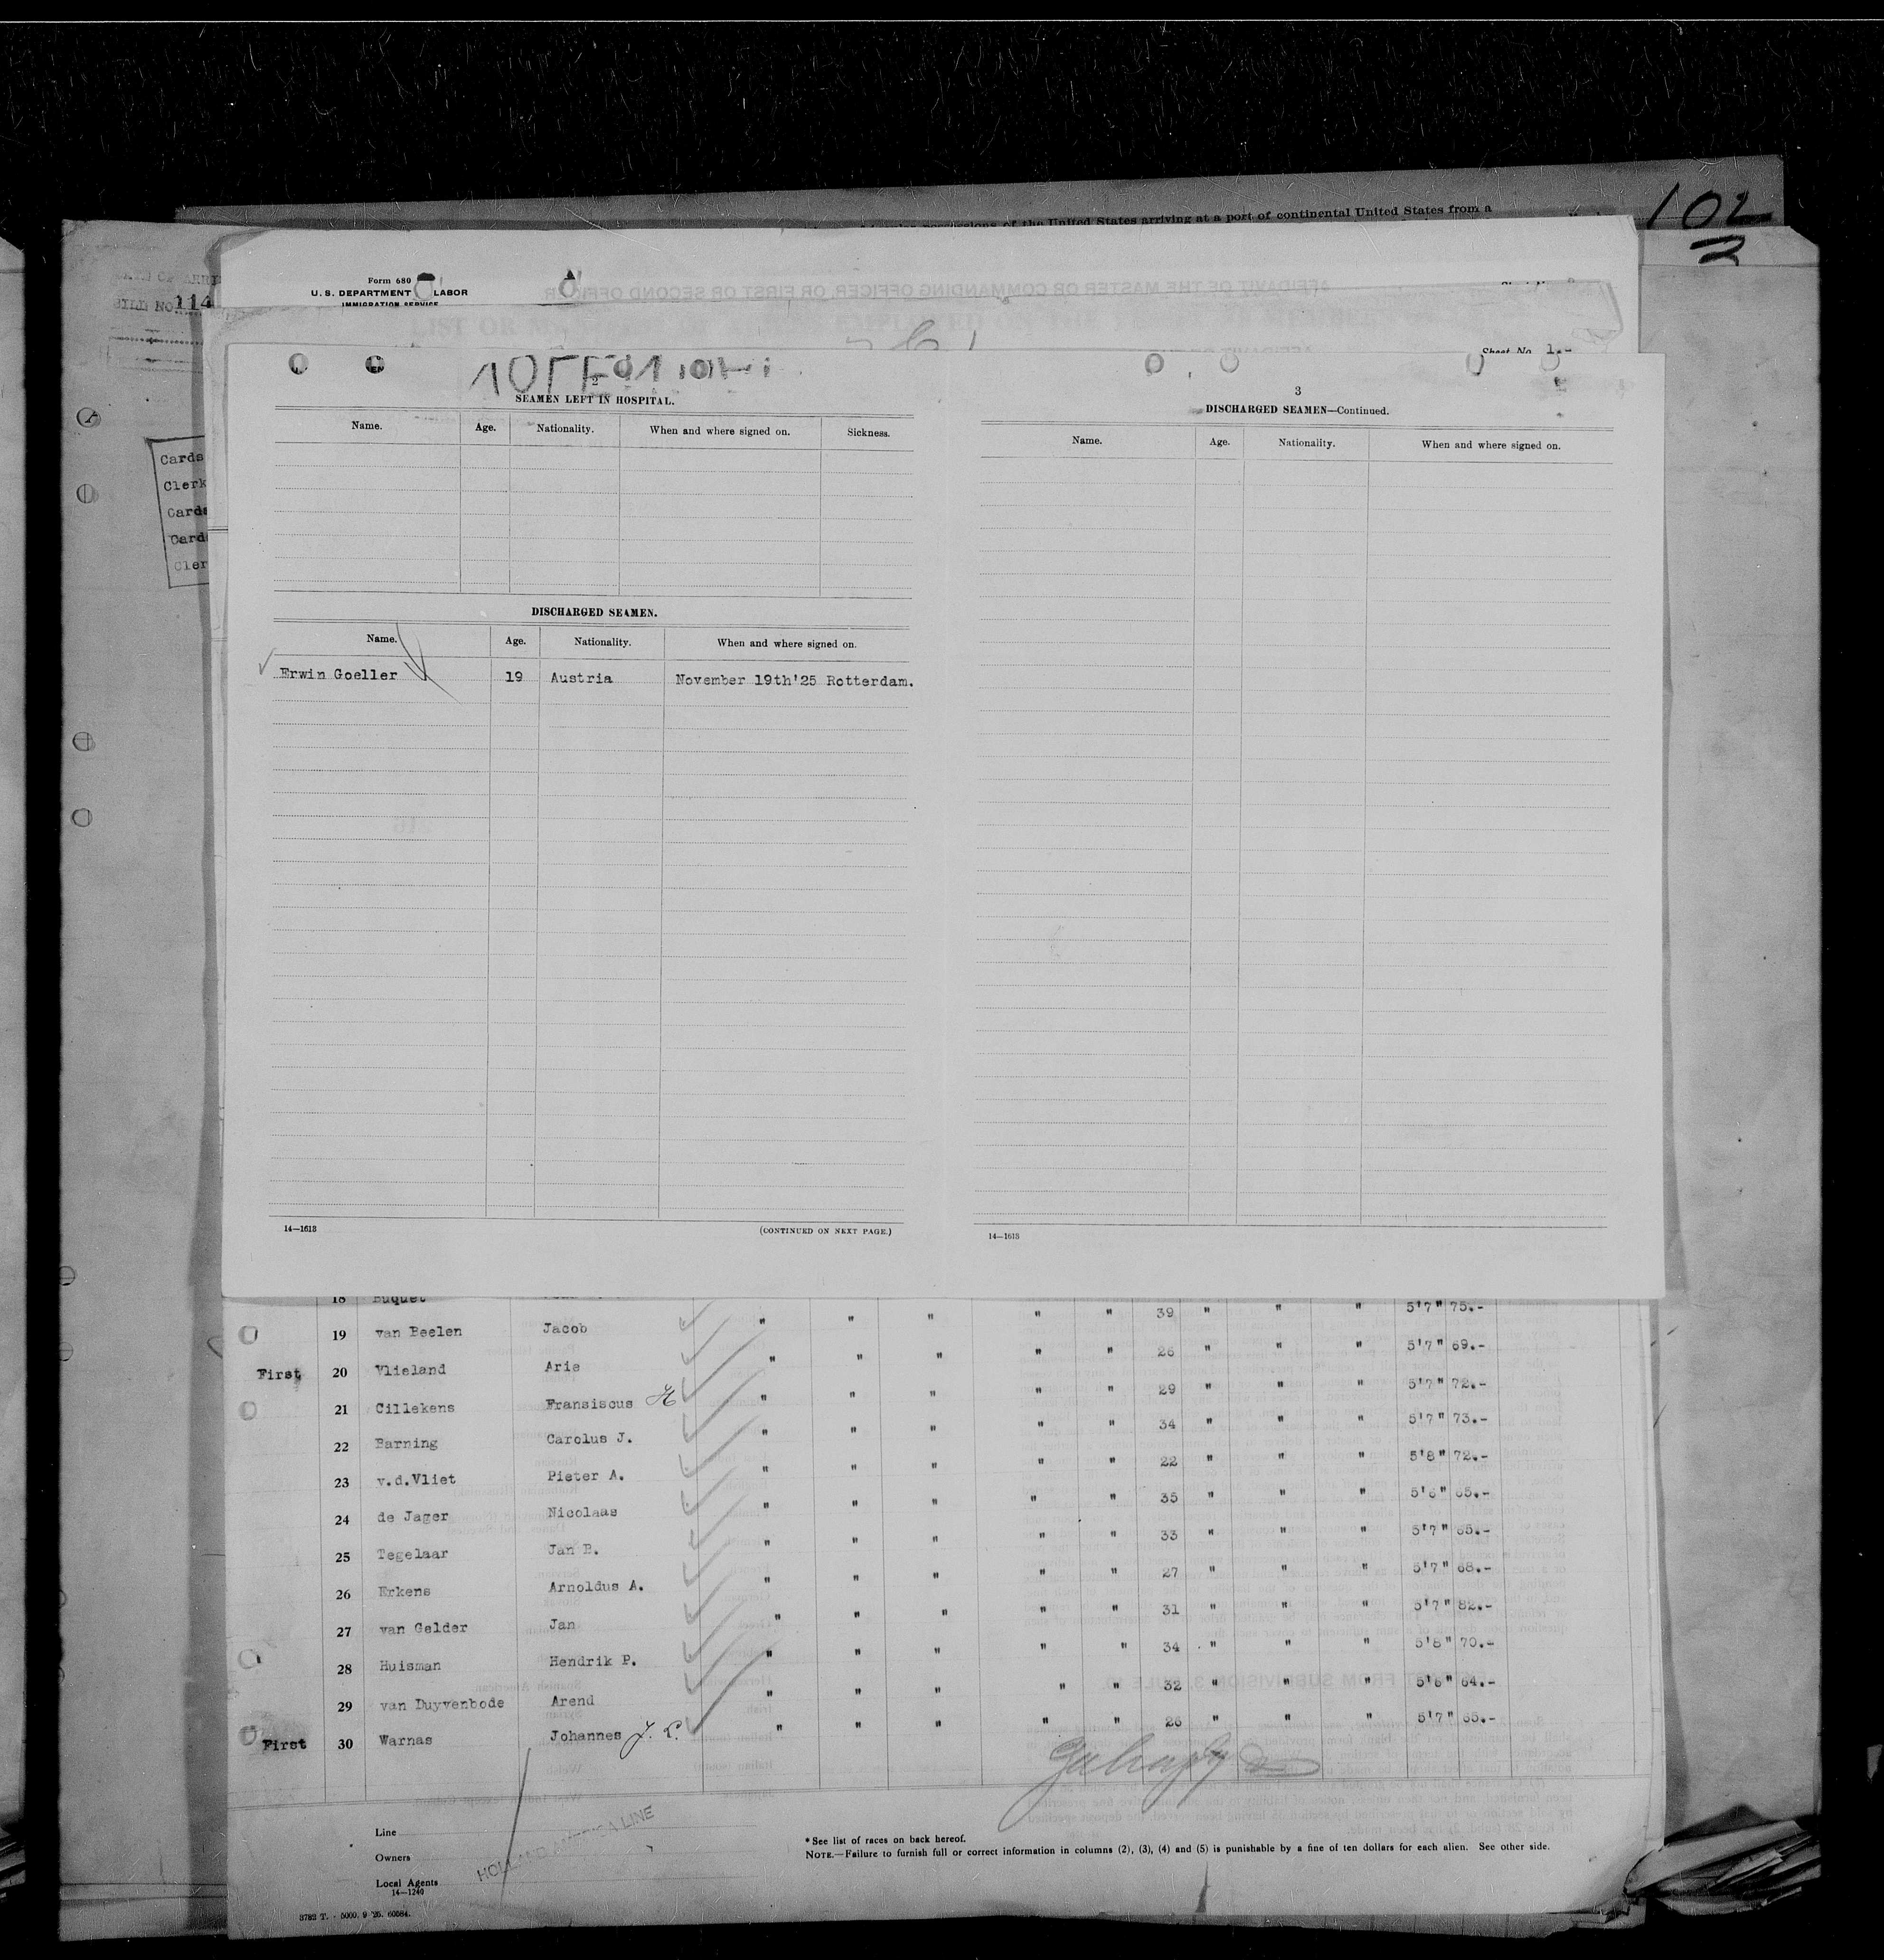 of the United States arriving at a port of continental United States from a
102
2
Form 680
U. S. DEPARTMENT LABOR
IMMIGRATION SERVICE
114
Sheet No. 1.-
Cards
Clerk
Cards
Card
Cler
2
SEAMEN LEFT IN HOSPITAL.
Name. Age. Nationality. When and where signed on. Sickness.
DISCHARGED SEAMEN.
Name. Age. Nationality. When and where signed on.
Erwin Goeller 19 Austria November 19th'25 Rotterdam.
14—1613 (CONTINUED ON NEXT PAGE.)
3
DISCHARGED SEAMEN—Continued.
Name. Age. Nationality. When and where signed on.
14—1613
18 Buquet
19 van Beelen Jacob " " " " " 39 " " " 5'7" 75.-
First 20 Vlieland Arie " " " " " 26 " " " 5'7" 69.-
21 Cillekens Fransiscus H " " " " " 29 " " " 5'7" 72.-
22 Barning Carolus J. " " " " " 34 " " " 5'7" 73.-
23 v.d.Vliet Pieter A. " " " " " 22 " " " 5'8" 72.-
24 de Jager Nicolaas " " " " " 35 " " " 5'6" 65.-
25 Tegelaar Jan B. " " " " " 33 " " " 5'7" 65.-
26 Erkens Arnoldus A. " " " " " 27 " " " 5'7" 68.-
27 van Gelder Jan " " " " " 31 " " " 5'7" 82.-
28 Huisman Hendrik P. " " " " " 34 " " " 5'8" 70.-
29 van Duyvenbode Arend " " " " " 32 " " " 5'6" 64.-
First 30 Warnas Johannes J. L. " " " " " 26 " " " 5'7" 65.-
Line
Owners
HOLLAND AMERICA LINE
Local Agents
14—1240
* See list of races on back hereof.
NOTE.—Failure to furnish full or correct information in columns (2), (3), (4) and (5) is punishable by a fine of ten dollars for each alien. See other side.
3782 T. - 5000. 9-'25. 60584.